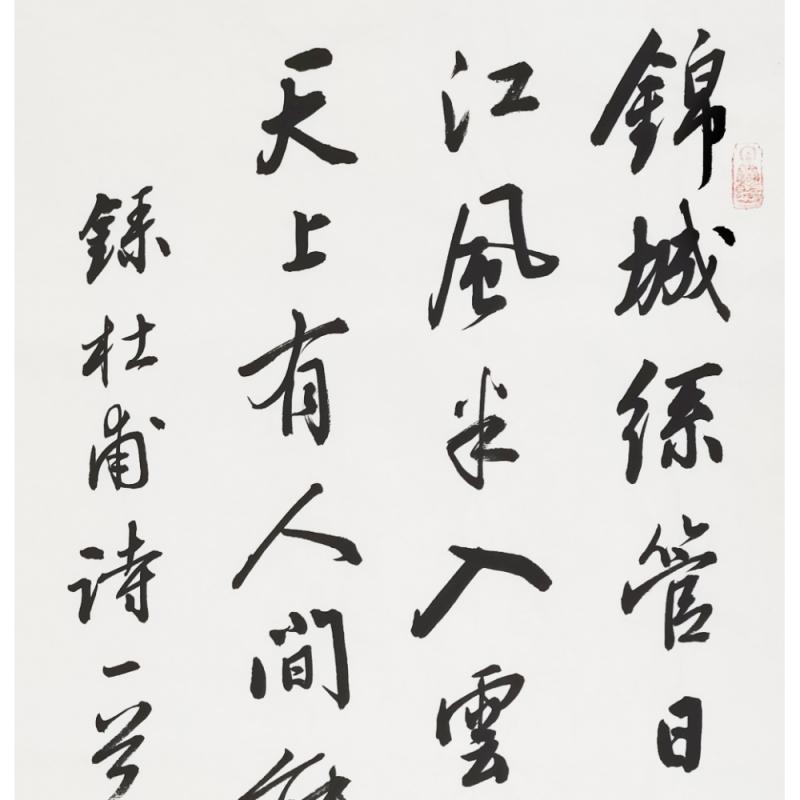 錦城絲管日
江風半入雲
天上有人間
錄杜甫詩一首